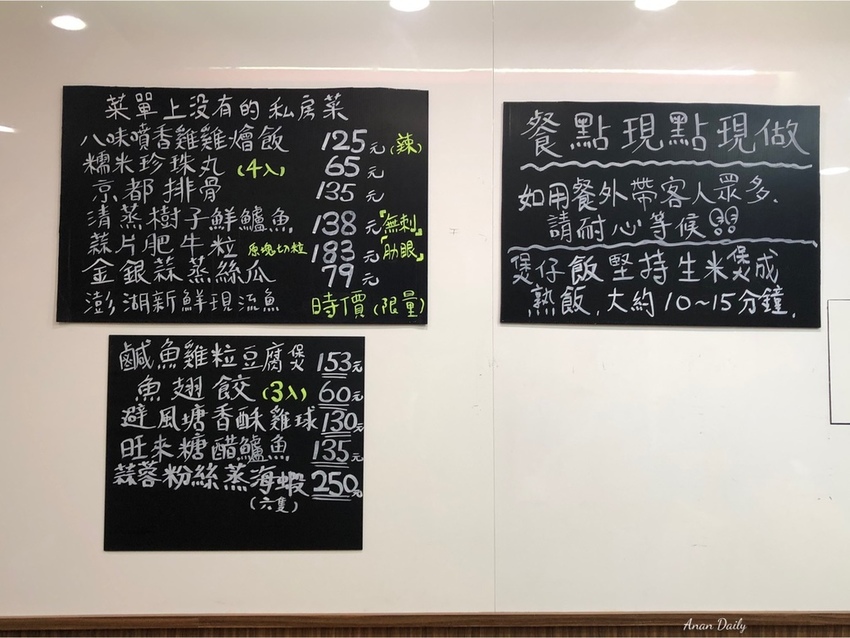 菜單上没有的私房菜
八味噴香雞雞燴飯 125元(辣)
糯米珍珠丸(4入) 65元
京都排骨 135元
清蒸樹子鮮鱸魚 138元『無刺』
蒜片肥牛粒 原塊切粒 183元『肋眼』
金銀蒜蒸絲瓜 79元
澎湖新鮮現流魚 時價(限量)
鹹魚雞粒豆腐煲 153元
魚翅餃(3入) 60元
避風塘香酥雞球 130元
旺來糖醋鱸魚 135元
蒜蓉粉絲蒸海蝦 250元
(六隻)
餐點現點現做
如用餐外帶客人眾多.
請耐心等候!!
煲仔飯堅持生米煲成
熟飯,大約10~15分鐘.
Anan Daily